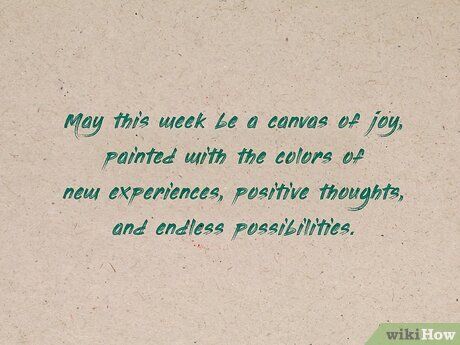 May this week be a canvas of joy,
painted with the colors of
new experiences, positive thoughts,
and endless possibilities.
wikiHow